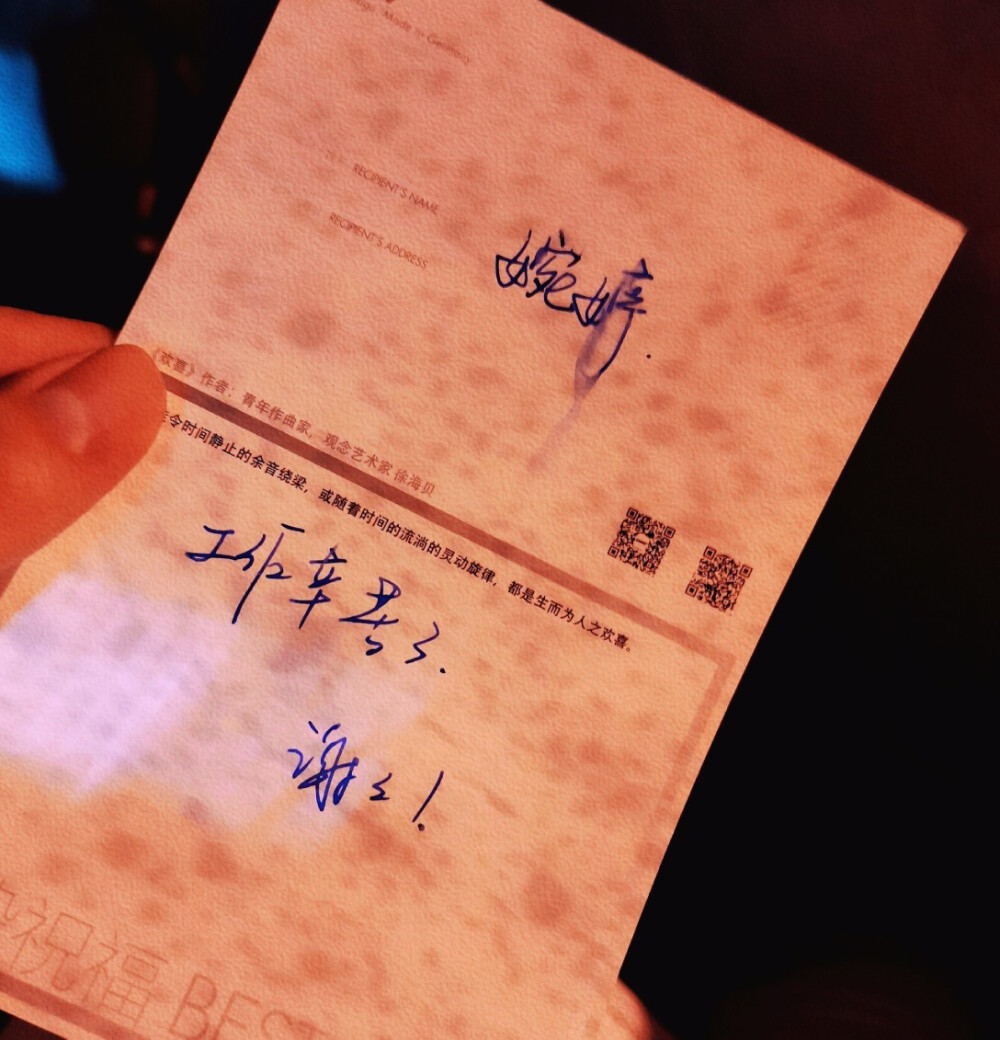 Made in Germany
RECIPIENT'S NAME
RECIPIENT'S ADDRESS
婉婷.
《欢喜》作者：青年作曲家，观念艺术家 徐海贝
令时间静止的余音绕梁，或随着时间的流淌的灵动旋律，都是生而为人之欢喜。
工作辛苦了.
谢谢！
祝福 BEST